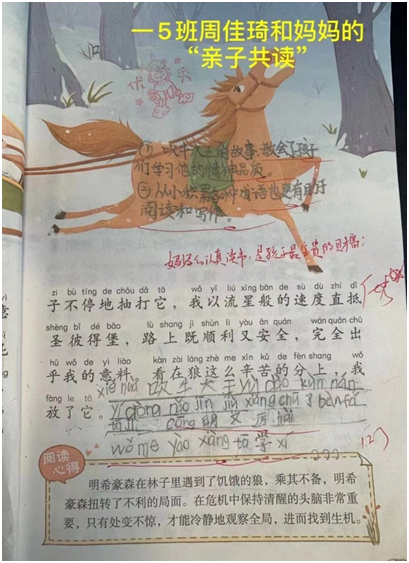 一5班周佳琦和妈妈的
“亲子共读”
① 吹牛大王的故事,教会了孩子
们学习他的精神品质。
② 从小积累各种成语也更有助于
阅读和写作。
妈妈么认真读书,是孩子最宝贵的财富;
zi bù tíng de chōu dǎ tā wǒ yǐ liú xīng bān de sù dù zhí dǐ
子不停地抽打它，我以流星般的速度直抵
shèng bǐ dé bǎo lù shang jì shùn lì yòu ān quán wán quán chū
圣彼得堡，路上既顺利又安全，完全出
hū wǒ de yì liào kàn zài láng zhè me xīn kǔ de fèn shang wǒ
乎我的意料。看在狼这么辛苦的分上，我
fàng le tā
放了它。
吹牛大王 yù dào kùn nán
yí dòng nǎo jīn jiù xiǎng chū 3 bàn fǎ
聪明又厉害
wǒ me yao xiang ta 学 xi
阅读
心得
明希豪森在林子里遇到了饥饿的狼，乘其不备，明希
豪森扭转了不利的局面。在危机中保持清醒的头脑非常重
要，只有处变不惊，才能冷静地观察全局，进而找到生机。